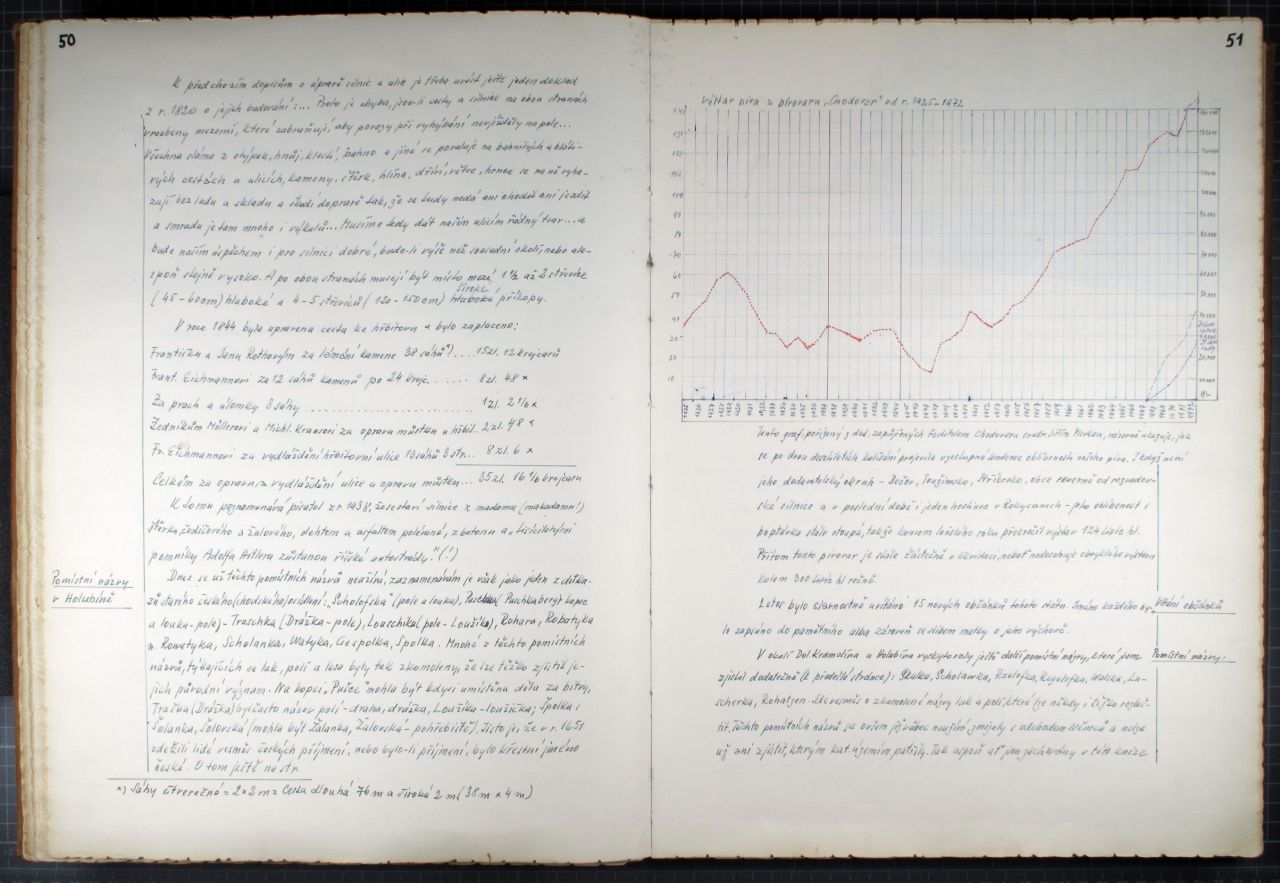 50
K předchozím dopisům o úpravě silnic a ulic je třeba uvést ještě jeden doklad
z r. 1820 o jejich budování:... Proto je chyba, jsou-li cesty a silnice na obou stranách
vroubeny mezemi, které zabraňují, aby povozy při vyhýbání nevjížděly na pole...
Všechna sláma z otýpek, hnůj, klestí, bahno a jiné se povaluje na bahnitých a bláti-
vých cestách a ulicích, kameny, štěrk, hlína, dříví, větve, hrnce se na ně vyha-
zují bez ladu a skladu a škodí dopravě tak, že se tudy nedá ani chodit ani jezdit
a smradu je tam mnoho i výkalů... Musíme tedy dát našim ulicím řádný tvar... a
bude naším úspěchem i pro silnici dobré, bude-li výše než sousední okolí, nebo ale-
spoň stejně vysoko. A po obou stranách musejí být místo mezí, 1 1/2 až 2 střevíce
(45-60cm) hluboké a 4-5 střevíců (120-150cm) široké příkopy.
V roce 1844 byla upravena cesta ke hřbitovu a bylo zaplaceno:
Františku a Janu Rothovým za lámání kamene 38 sáhů*).... 15zl. 12 krejcarů
Frant. Eichmannovi za 12 sáhů kamenů po 24 krejc....... 8 zl. 48 "
Za prach a úlomky 3 sáhy ........ 1 zl. 2 1/6 "
Zedníkům Müllerovi a Michl. Krausovi za opravu můstku u hřbit.. 2 zl. 48 "
Fr. Eichmannovi za vydláždění hřbitovní ulice 13 sáhů 3 stř... 8 zl. 6 "
Celkem za opravu a vydláždění ulice a opravu můstku... 35 zl. 16 1/6 krejcaru
K tomu poznamenává pisatel z r. 1938, že se staví silnice z madamu (makadamu!)
štěrku, čedičového a žulového, dehtem a asfaltem polévané, z betonu a
pomníky Adolfa Hitlera zůstanou říšské autostrády." (!)
Pomístní názvy
v Holubíně
Dnes se už těchto pomístních názvů neužívá, zaznamenávám je však jako jeden z důka-
zů starého českého (chodského) osídlení: "Scholofska" (pole a louka), Puschkaberg (kopec
a louka-pole) - Traschka (Drážka-pole), Louschika (pole-Loužika), Rohara, Robatyka
n. Rowatyka, Scholanka, Watyka, Gespolka, Spolka. Mnohé z těchto pomístních
názvů, týkajících se luk, polí a lesů byly tak zkomoleny, že lze těžko zjistit je-
jich původní význam. Na kopci "Pušce" mohla být kdysi umístěna děla za bitvy,
Traška (Drážka) byl často název polí - draha, drážka, Loužika - loužička; Spolka i
Šolanka, Šolovská (mohla být Žalanka, Žalovská - pohřebiště). Jisto je, že v r. 1651
zde žili lidé vesměs českých příjmení, nebo bylo-li příjmení, bylo křestní jméno
české. O tom ještě na str.
*) Sáhy čtvereční = 2x2 m = Cesta dlouhá 76 m a široká 2 m (38 m x 4 m)
51
Výstav piva z pivovaru "Chodovar" od r. 1925-1972
Tento graf, pořízený z dat, zapůjčených ředitelem Chodovaru soudr. Jiřím Plevkou, názorně ukazuje, jak
se po dvou desetiletích kolísání projevila vzestupná tendence oblíbenosti našeho piva. I když není
jeho dodavatelský okruh - Bečov, Toužimsko, Stříbrsko, obce severně od rozvadov-
ské silnice a v poslední době i jeden hostinec v Rokycanech - jeho oblíbenost i
poptávka stále stoupá, takže koncem loňského roku překročil výstav 124 tisíc hl.
Přitom tento pivovar je stále částečně v likvidaci, neboť nedosahuje obvyklého výstavu
kolem 300 tisíc hl ročně.
Letos bylo slavnostně uvítáno 15 nových občánků tohoto státu. Jméno každého by-
Vítání občánků
lo zapsáno do pamětního alba zároveň se slibem matky o jeho výchově.
V okolí Dol. Kramolína a Holubína vyskytovaly ještě další pomístní názvy, které jsem
Pomístní názvy:
zjistil dodatečně (k předešlé stránce): Skulka, Scholawka, Rzelofka, Regelofka, Walška, La-
scherka, Rohatzen. Jde vesměs o zkomolené názvy luk a polí, které lze někdy i těžko rozluš-
tit. Těchto pomístních názvů se ovšem již vůbec neužívá, zmizely s odchodem Němců a nelze
už ani zjistit, kterým kat. územím patřily. Tak aspoň ať jsou zachovány v této knize